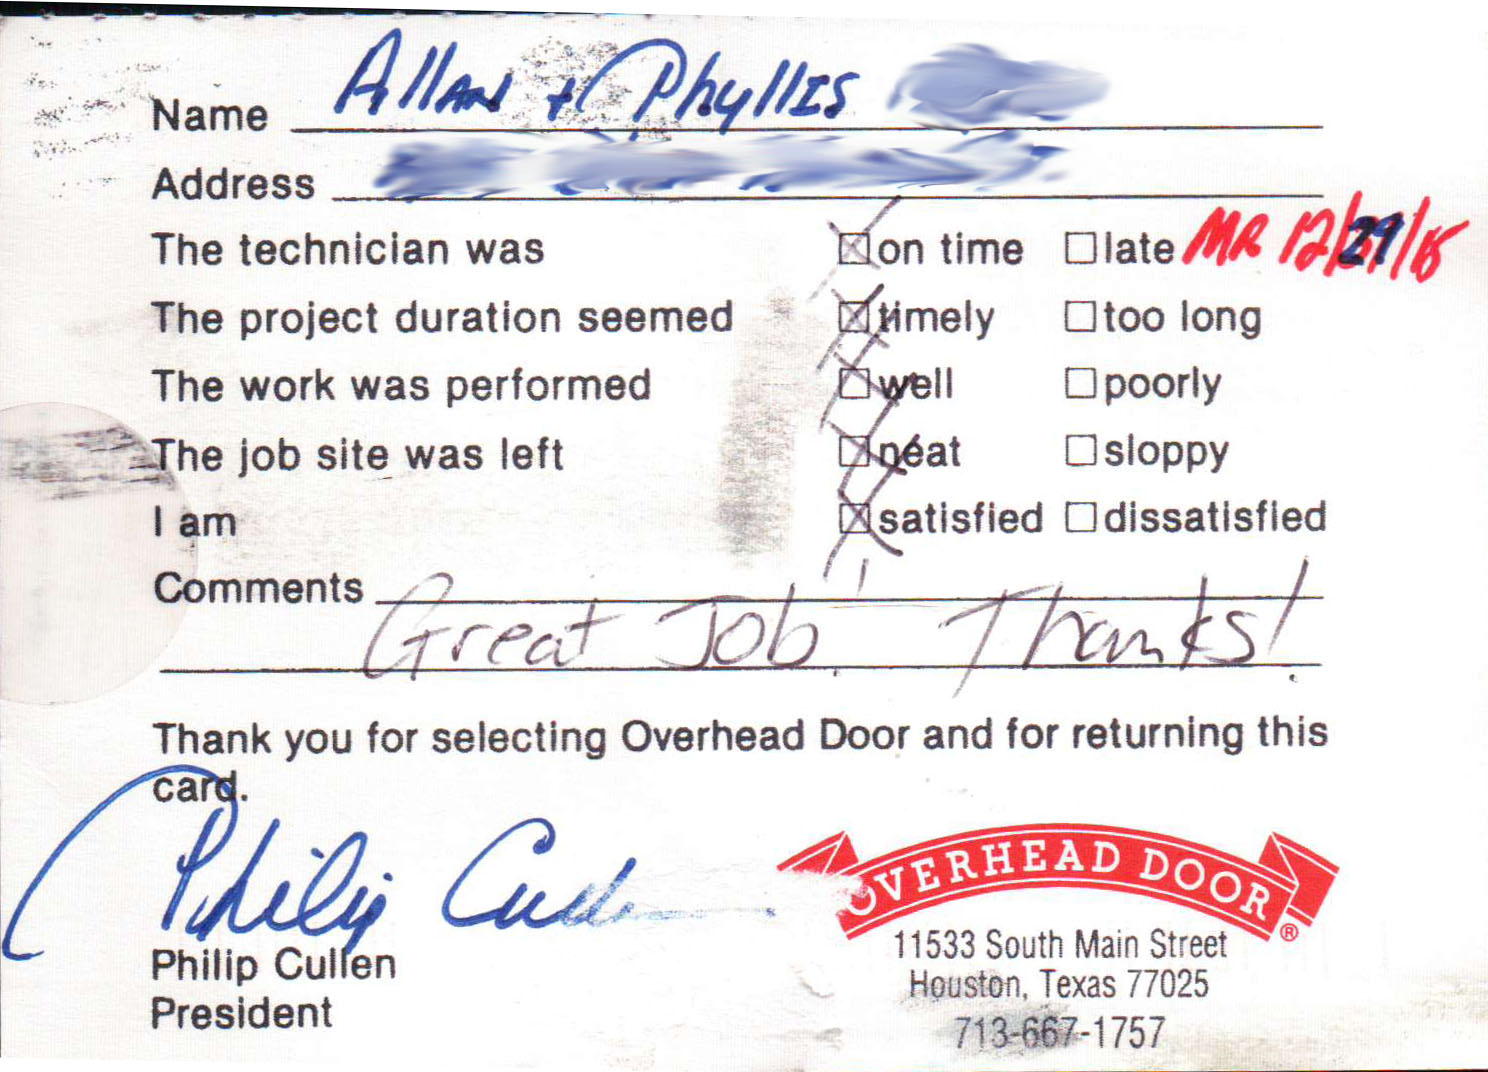 Name Allan + Phyllis
Address
The technician was ☒ on time ☐ late MR 12/29/15
The project duration seemed ☒ timely ☐ too long
The work was performed ☒ well ☐ poorly
The job site was left ☒ neat ☐ sloppy
I am ☒ satisfied ☐ dissatisfied
Comments
Great Job! Thanks!
Thank you for selecting Overhead Door and for returning this
card.
Philip Cullen
Philip Cullen
President
OVERHEAD DOOR®
11533 South Main Street
Houston, Texas 77025
713-667-1757